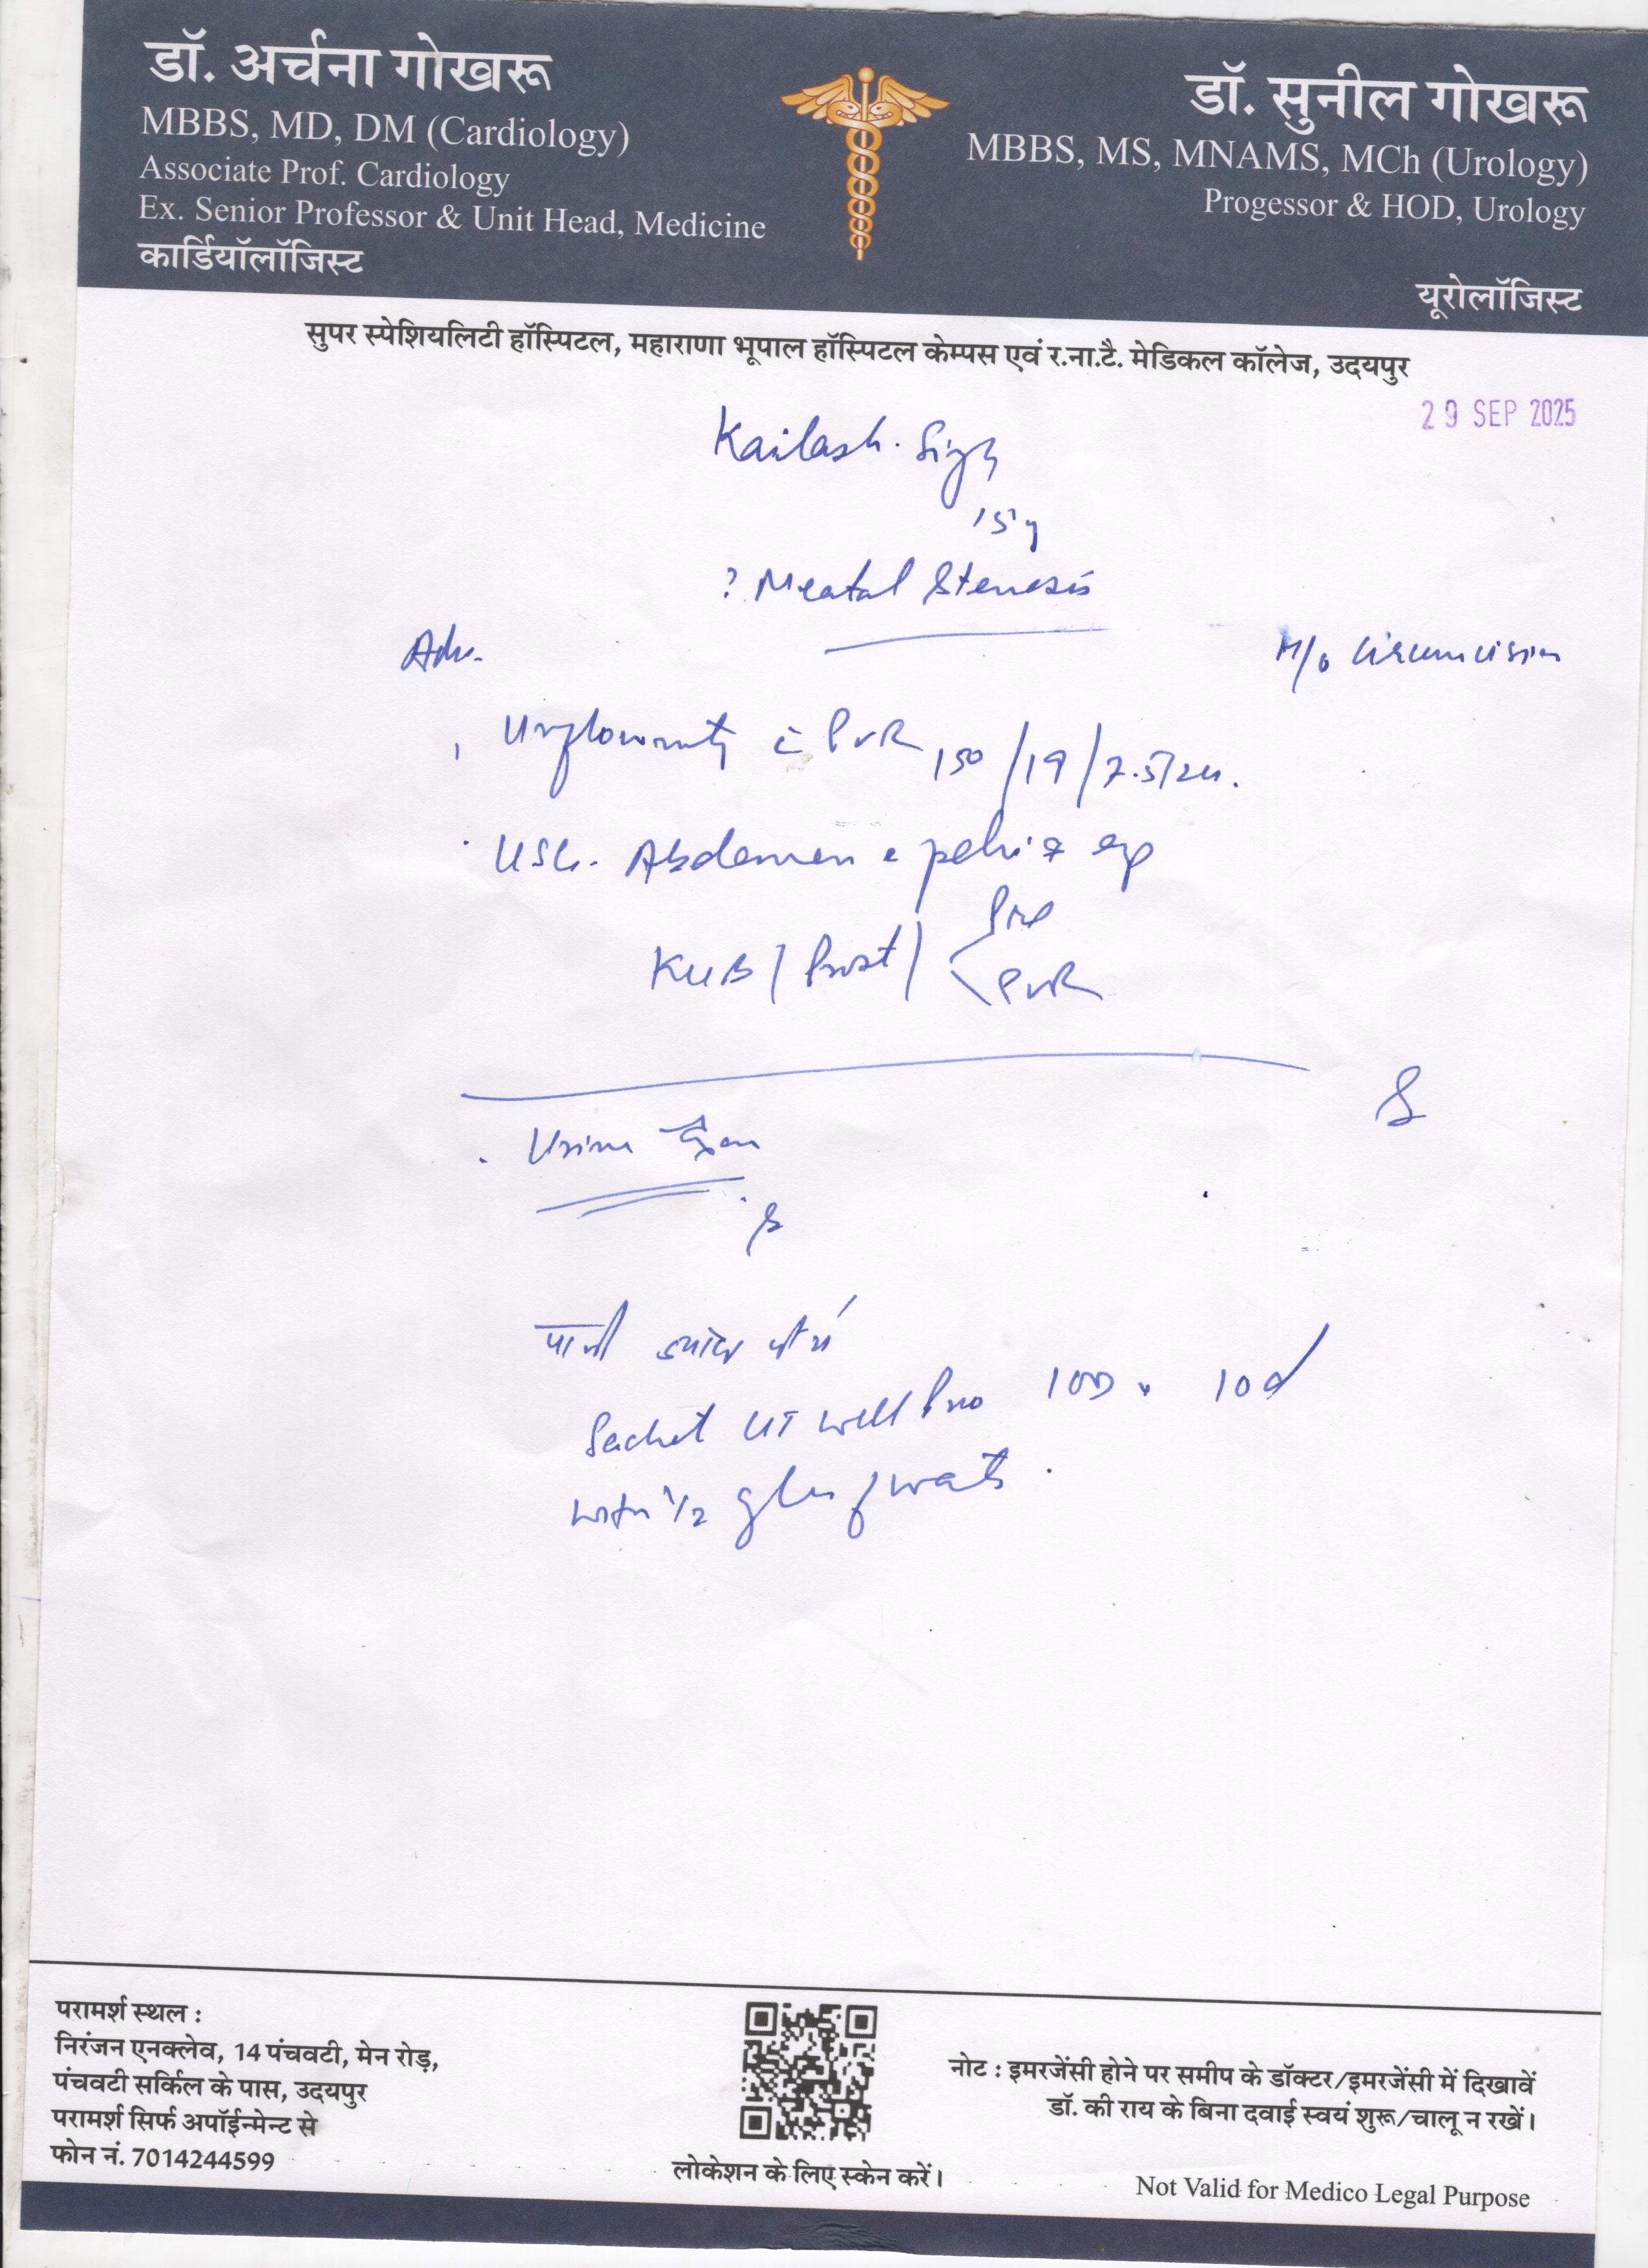 डॉ. अर्चना गोखरू
MBBS, MD, DM (Cardiology)
Associate Prof. Cardiology
Ex. Senior Professor & Unit Head, Medicine
कार्डियॉलॉजिस्ट
डॉ. सुनील गोखरू
MBBS, MS, MNAMS, MCh (Urology)
Progessor & HOD, Urology
यूरोलॉजिस्ट
सुपर स्पेशियलिटी हॉस्पिटल, महाराणा भूपाल हॉस्पिटल केम्पस एवं र.ना.टै. मेडिकल कॉलेज, उदयपुर
29 SEP 2025
Kailash. Sigh
15 y
? Meatal Stenosis
Adv.
H/o Circumcision
Uroflowmetry c̄ PVR 150/19/7.5/
USG. Abdomen
KUB / Prost / Pre
PVR
Urine Exam
पानी
Sachet UT well Pro 10D
with 1/2 glass of water.
परामर्श स्थल :
निरंजन एनक्लेव, 14 पंचवटी, मेन रोड़,
पंचवटी सर्किल के पास, उदयपुर
परामर्श सिर्फ अपॉईन्मेन्ट से
फोन नं. 7014244599
लोकेशन के लिए स्केन करें।
नोट : इमरजेंसी होने पर समीप के डॉक्टर/इमरजेंसी में दिखावें
डॉ. की राय के बिना दवाई स्वयं शुरू/चालू न रखें।
Not Valid for Medico Legal Purpose